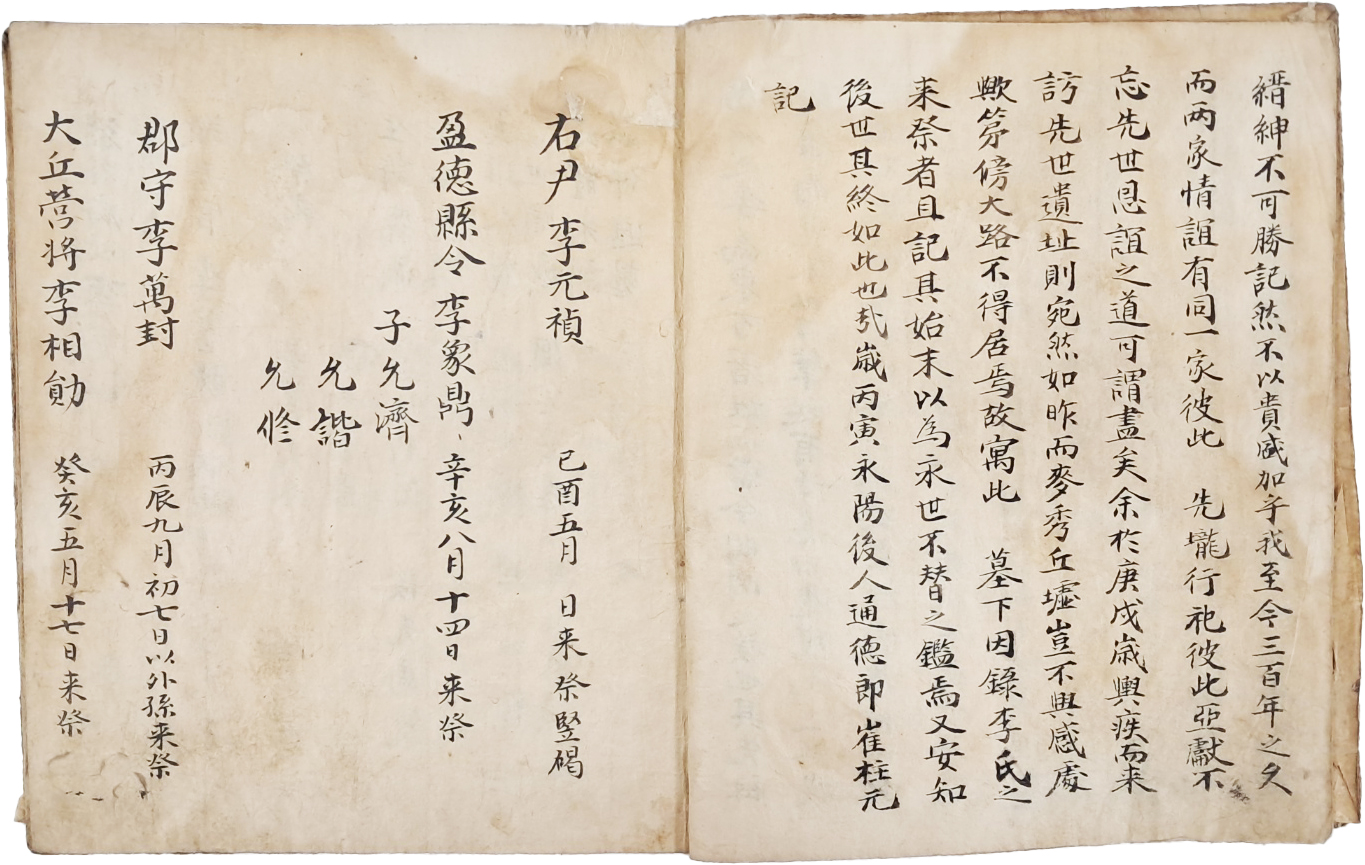 縉紳不可勝記然不以貴盛加乎我至今三百年之久
而兩家情誼有同一家彼此 先壠行祀彼此亞獻不
忘先世恩誼之道可謂盡矣余於庚戌歲輿疾而来
訪先世遺址則宛然如昨而麥秀丘墟豈不興感處
歟第傍大路不得居焉故寓此 墓下因錄李氏之
来祭者且記其始末以為永世不替之鑑焉又安知
後世其終如此也㢤歲丙寅永陽後人通德郎崔柱元
記
右尹李元禎 己酉五月 日来祭竪碣
盈德縣令李象鼎、辛亥八月十四日来祭
子允濟
允諧
允修
郡守李萬封 丙辰九月初七日以外孫来祭
大丘營將李相勛 癸亥五月十七日来祭